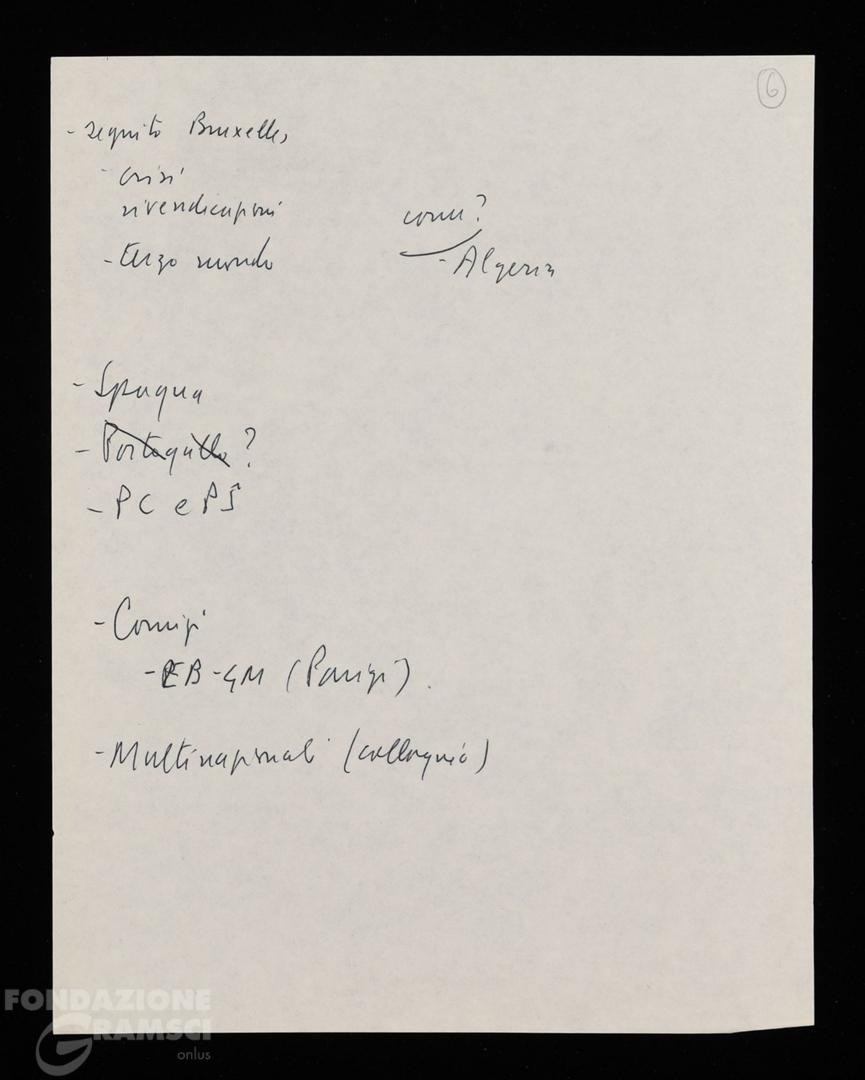 6
- seguito Bruxelles
- crisi
rivendicazioni
- terzo mondo
come?
- Algeria
- Spagna
- Portogallo ?
- PC e PS
- Comizi
- EB - GM (Parigi).
- Multinazionali (colloquio)
FONDAZIONE
GRAMSCI
onlus